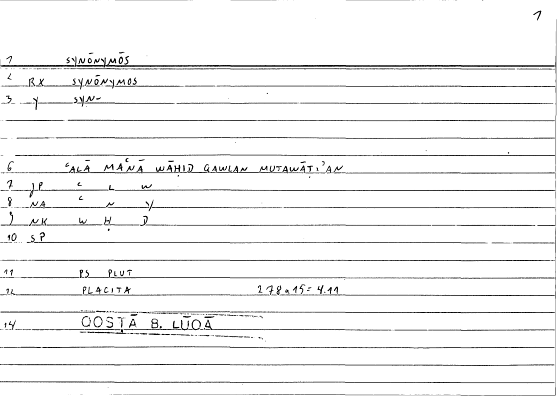 1
1 SYNŌNYMŌS
2 RX SYNŌNYMOS
3 y SYN-
6 ʿALĀ MAʿNĀ WĀḤID QAWLAN MUTAWĀṬIʾAN
7 JP ʿ L W
8 NA ʿ N Y
9 NK W Ḥ D
10 SP
11 PS PLUT
12 PLACITA 278a15 = 4.11
14 QOSṬĀ B. LŪQĀ